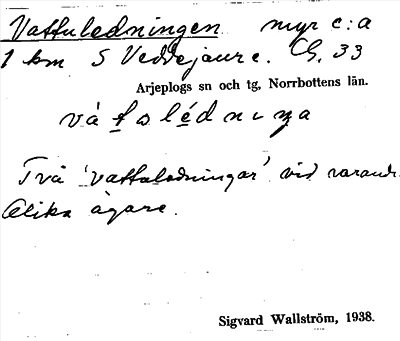 Vattuledningen myr c:a
1 km S Veddejaure. Ch. 33
Arjeplogs sn och tg, Norrbottens län.
vátəlédnıŋa
Två 'vattuledningar' vid varandr.
Olika ägare.
Sigvard Wallström, 1938.